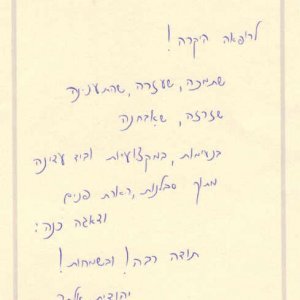 לרופאה היקרה!
שתמכה, שעזרה, שהתענינה
שזרזה, שאבחנה
בנעימות, במקצועיות וביד עדינה
מתוך סבלנות, הארת פנים
ודאגה כנה:
תודה רבה! ובשמחות!
יהודית